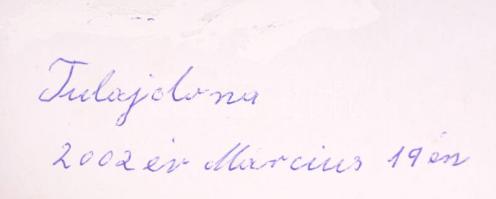 Tulajdona
2002 év Március 19 én